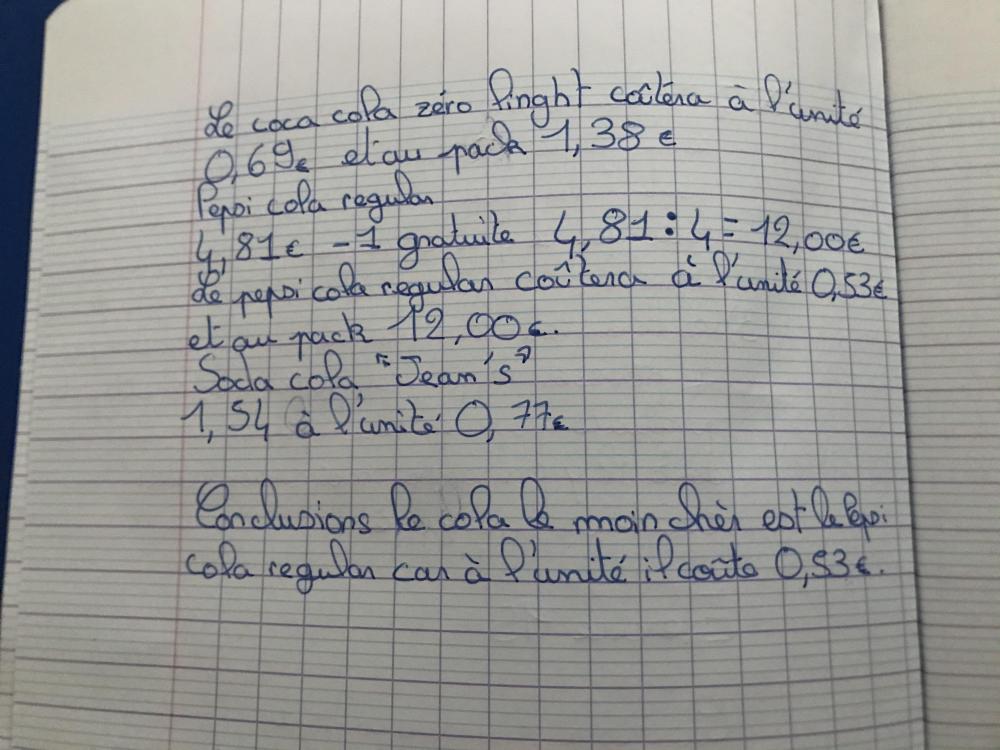 Le coca cola zéro linght coûtera à l'unité
0,69€ et au pack 1,38€
Pepsi cola regular
4,81€ -1 gratuite 4,81:4=12,00€
Le pepsi cola regular coûtera à l'unité 0,53€
et au pack 12,00€.
Soda cola "Jean's"
1,54 à l'unité 0,77€
Conclusions le cola le moin chèr est le Pepsi
cola regular car à l'unité il coûte 0,53€.